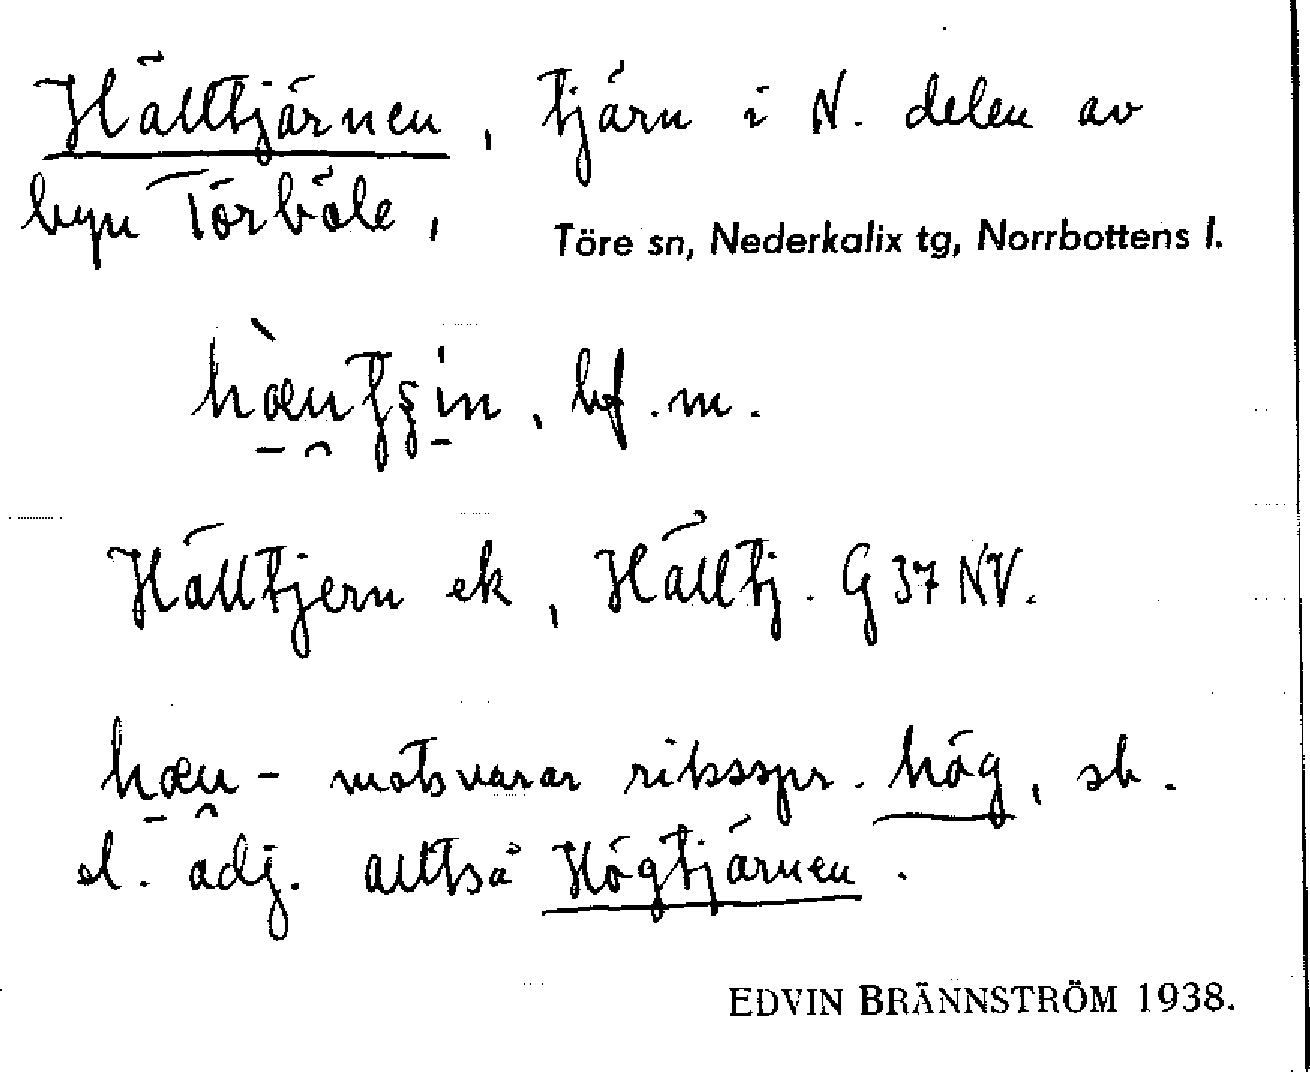 Hälltjärnen, tjärn i N. delen av
byn Törböle,
Töre sn, Nederkalix tg, Norrbottens l.
bf. m.
Hälltjern ek, Hälltj. G 37 NV.
hæu- motsvarar riksspr. hög, sb.
el. adj. alltså Högtjärnen.
EDVIN BRÄNNSTRÖM 1938.